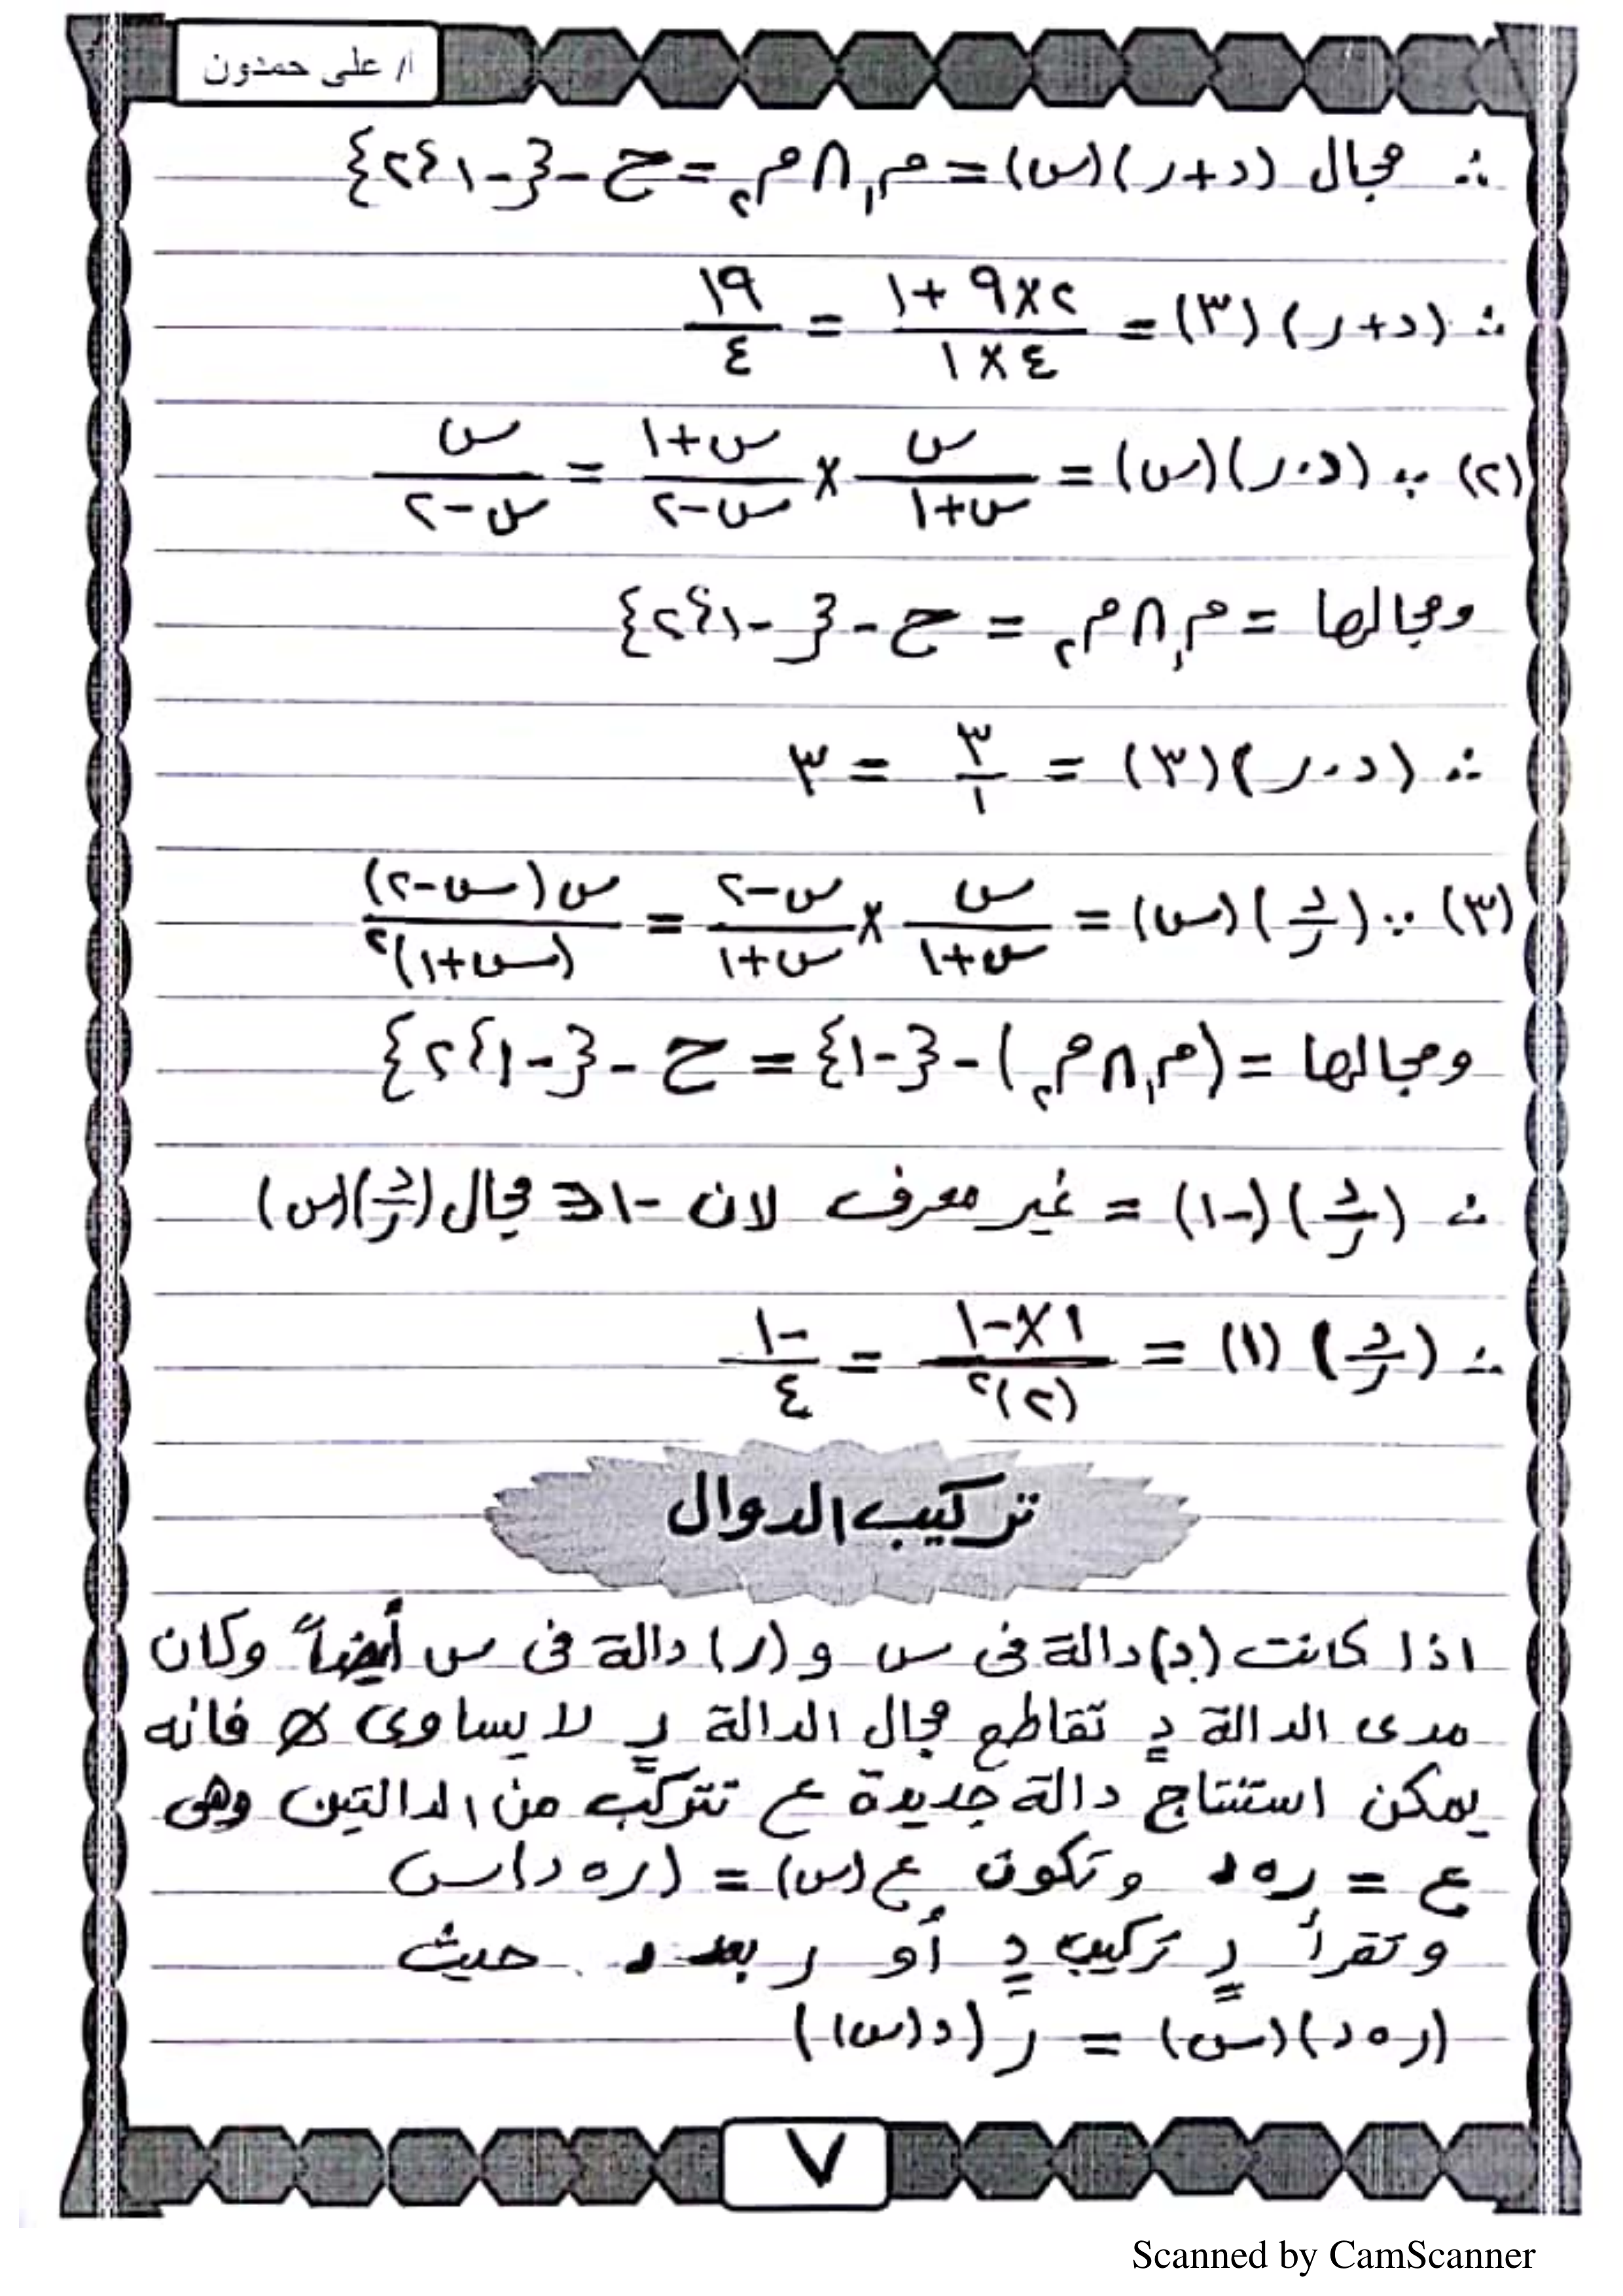 أ/ على حمدون
∴ مجال (د+ر)(س) = م₁ ∩ م₂ = ح - {-١، ٢}
∴ (د+ر)(٣) = (٢×٩+١)/(٤×١) = ١٩/٤
(٢) ∵ (د.ر)(س) = س/(س+١) × (س+١)/(س-٢) = س/(س-٢)
ومجالها = م₁ ∩ م₂ = ح - {-١، ٢}
∴ (د.ر)(٣) = ٣/١ = ٣
(٣) ∵ (د/ر)(س) = س/(س+١) × (س-٢)/(س+١) = س(س-٢)/(س+١)²
ومجالها = (م₁ ∩ م₂) - {-١} = ح - {-١، ٢}
∴ (د/ر)(-١) = غير معرف لان -١ ∌ مجال (د/ر)(س)
∴ (د/ر)(١) = (١×-١)/(٢)² = -١/٤
تركيب الدوال
اذا كانت (د) دالة فى س و (ر) دالة فى س أيضاً وكان
مدى الدالة د تقاطع مجال الدالة ر لا يساوى ∅ فانه
يمكن استنتاج دالة جديدة ع تتركب من الدالتين وهى
ع = ر∘د وتكون ع(س) = (ر∘د)س
وتقرأ ر تركيب د أو ر بعد د حيث
(ر∘د)(س) = ر(د(س))
٧
Scanned by CamScanner